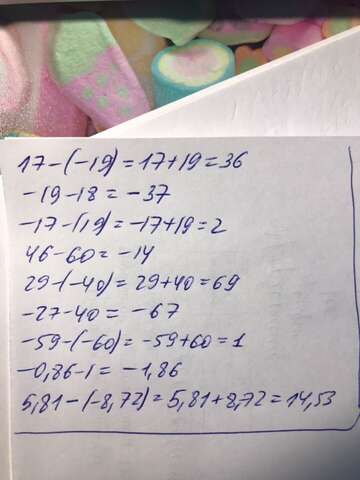 17-(-19)=17+19=36
-19-18=-37
-17-(19)=-17+19=2
46-60=-14
29-(-40)=29+40=69
-27-40=-67
-59-(-60)=-59+60=1
-0,86-1=-1,86
5,81-(-8,72)=5,81+8,72=14,53